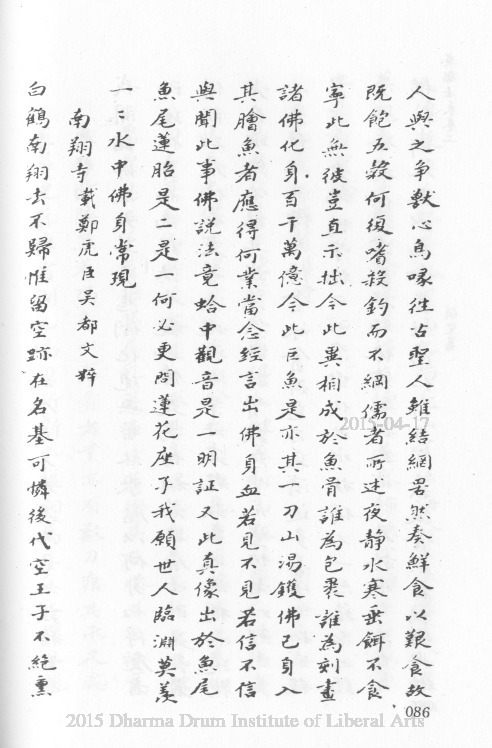 人與之爭獸心鳥喙徃古聖人雖結網罟然奏鮮食以艱食故
既飽五穀何復嗜殺釣而不綱儒者所述夜静水寒垂餌不食
寧此無彼豈直示拙今此異相成於魚骨誰為包裹誰為刻畫
諸佛化身百千萬億今此巨魚是亦其一刀山湯鑊佛己身入
其膾魚者應得何業當念經言出佛身血若見不見若信不信
與聞此事佛説法竟蛤中觀音是一明証又此真像出於魚尾
魚尾蓮胎是二是一何必更問蓮花座子我願世人臨淵莫羨
一ミ水中佛身常現
南翔寺載鄭虎臣吳都文粹
白鶴南翔去不歸惟留空跡在名基可憐後代空王子不絶熏
086
2015-04-17
2015 Dharma Drum Institute of Liberal Arts